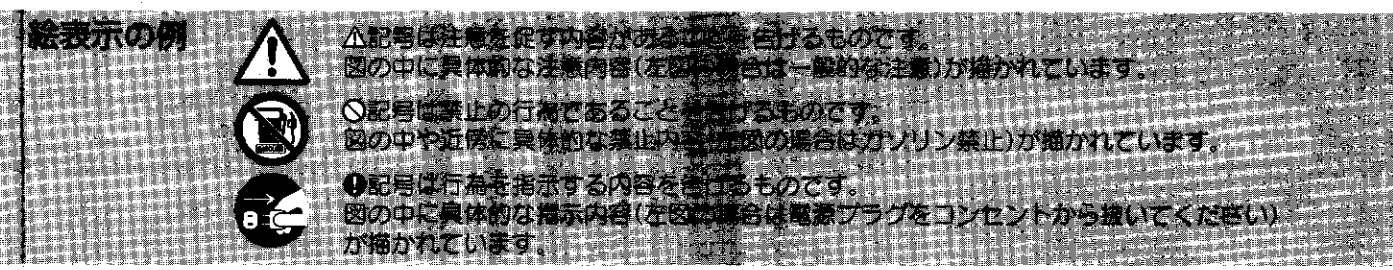 絵表示の例
⚠記号は注意を促す内容があることを告げるものです。
図の中に具体的な注意内容(左図の場合は一般的な注意)が描かれています。
🛇記号は禁止の行為であることを告げるものです。
図の中や近傍に具体的な禁止内容(左図の場合はガソリン禁止)が描かれています。
❶記号は行為を指示する内容を告げるものです。
図の中に具体的な指示内容(左図の場合は電源プラグをコンセントから抜いてください)
が描かれています。